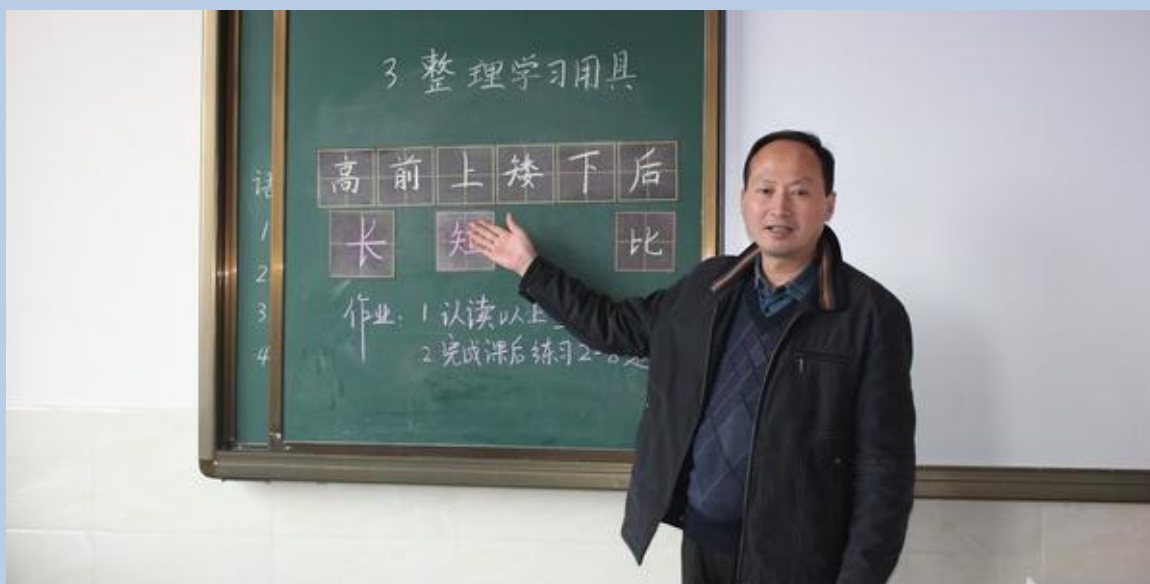 3 整理学习用具
高前上矮下后
长 短 比
语
1
2
3
4
作业: 1 认读以上
2 完成课后练习2-